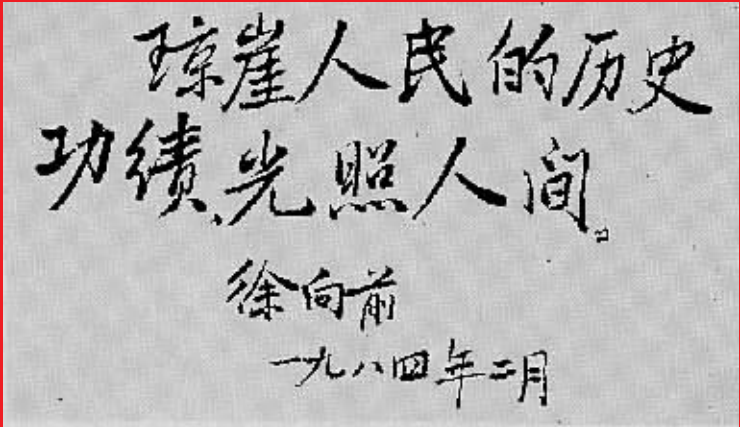 琼崖人民的历史
功绩,光照人间。
徐向前
一九八四年二月